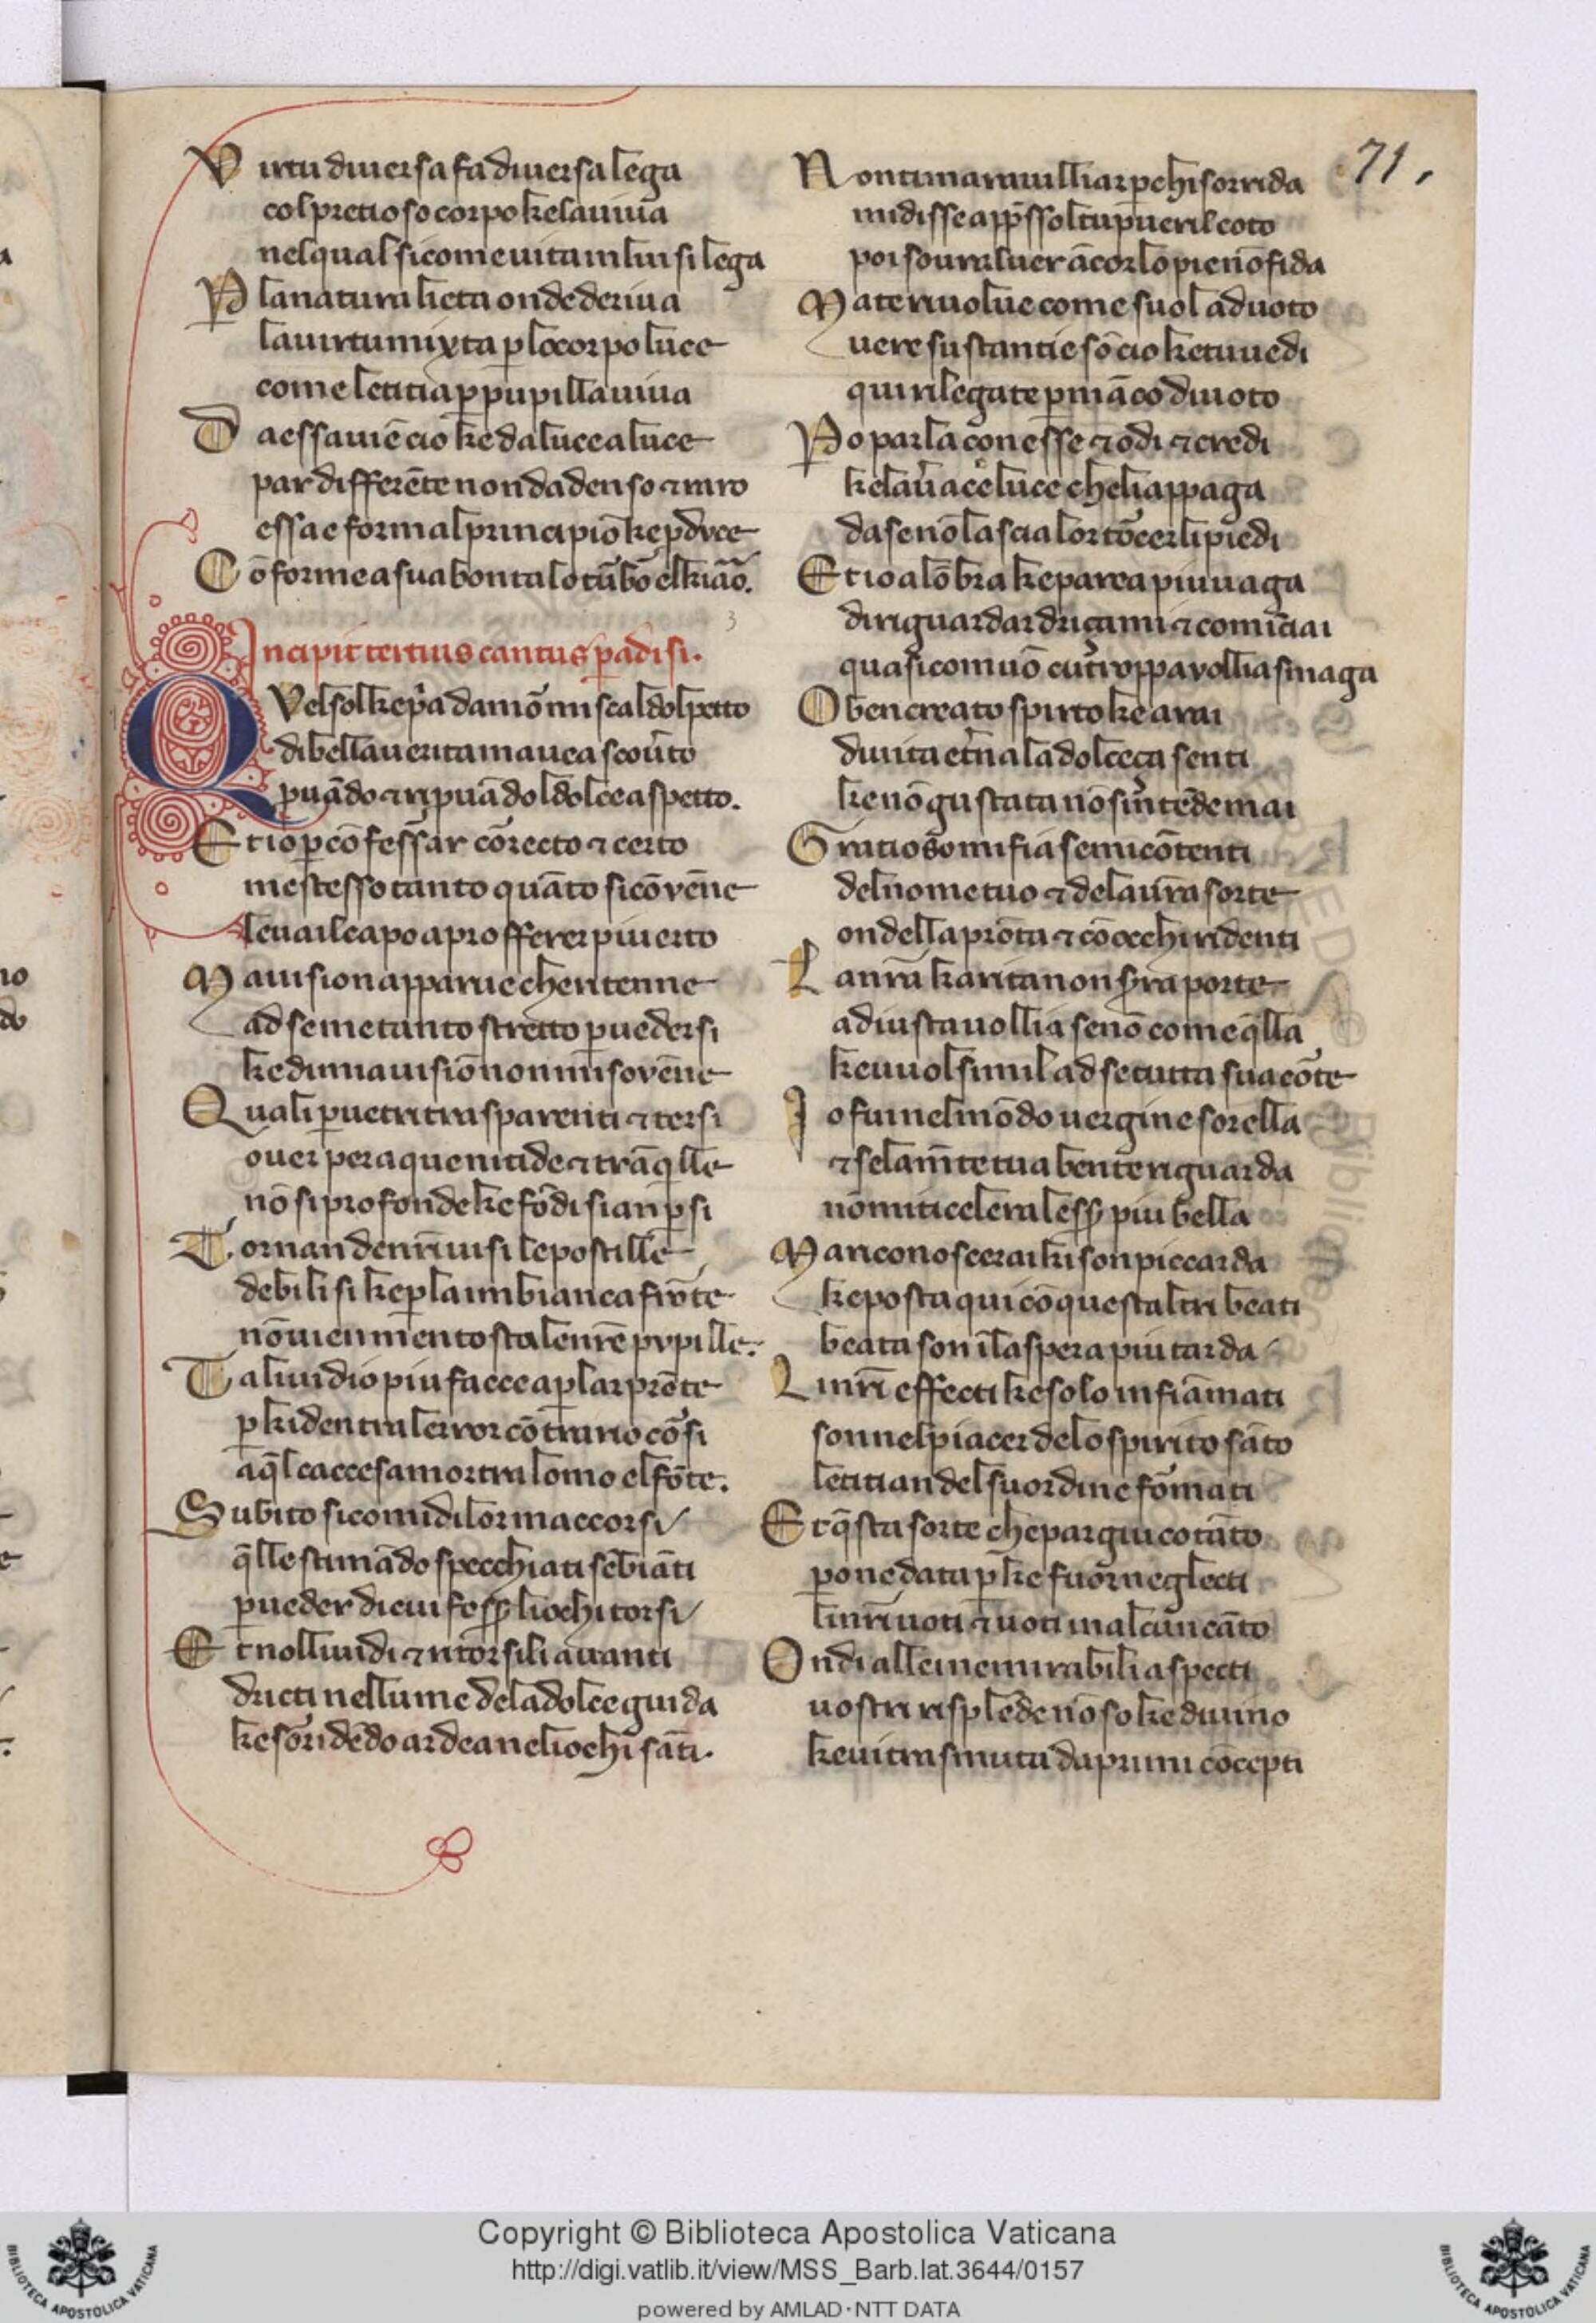 Virtu diuersa fa diuersa lega
col pretioso corpo ke lauiua
nel qual si come uita in lui si lega
P la natura lieta onde deriua
la uirtu mixta p lo corpo luce
come letitia p pupilla uiua
Da essa uiē cio ke da luce a luce
par differēte non da denso ⁊ raro
essa e formal principio ke pduce
Cōforme a sua bonta lo tūbo el kiāo.
Incipit tertius cantus padisi.
Quel sol ke pa damōr mi scaldol petto
di bella uerita mauea scouto
puādo ⁊ ripuādol dolce aspetto.
Et io p cōfessar cōrecto ⁊ certo
me stesso tanto quāto si cōvēne
leuai l capo a profferer piu erto
Ma uision apparue che ritenne
ad se me tanto stretto p uedersi
ke di mia uisiō non mi sovēne
Quali p uetri trasparenti ⁊ tersi
ouer per aque nitide ⁊ trāqlle
nō si profonde ke fōdi sian psi
Tornan de nrī uisi le postille
debili si ke perla in biāca frōte
nō uien men tosto a le nrē pupille.
Tali uidio piu facce a plar prōte
p kio dentra lerror cōtrario cōsi
a ql caccese amor tra lomo el fōte.
Subito si comio di lor maccorsi
qlle stimādo specchiati sēbiāti
p ueder di cui fess li ochi torsi
Et nolli uidi ⁊ ritorsili auanti
dricti nel lume de la dolce guida
ke sōridēdo ardea nelli ochi sāti.
71.
Non ti marauilliar p chi sorrida
mi disse appsso l tu pueril coto
poi soura l uer ācor lo pie nō fida
Ma te riuolue come suol a duoto
uere sustantie sō cio ke tu uedi
qui rilegate p māco di uoto
Po parla con esse ⁊ odi ⁊ credi
ke la uace luce che li appaga
da se nō lascia lor tōcer li piedi
Et io a lōbra ke parea piu uaga
di riguardar driçami ⁊ comīciai
quasi comuō cui troppa vollia smaga
O ben creato spirto ke a rai
di uita etna la dolceça senti
ke nō gustata nō sintēde mai
Gratioso mi fia se mi cōtenti
del nome tuo ⁊ de la ura sorte
ondella prōta ⁊ cō occhi ridenti
La nra karita non sra porte
a diusta vollia se nō come qlla
ke uuol simil ad se tutta sua cōte
Io fui nel mōdo uergine sorella
⁊ se la mīte tua ben te riguarda
nō mi ti celera less piu bella
Ma riconoscerai ki son piccarda
ke posta qui cō questi altri beati
beata son i la spera piu tarda
Li nrī effecti ke solo infiāmati
son nel piacer de lo spirito sāto
letitian del suo ordine fōmati
Et qsta sorte che par giu cotāto
po ne data p ke fuor neglecti
li nrī uoti ⁊ uoti in alcun cāto
Ondi alle ine mirabili aspecti
uostri risplēde nō so ke diuino
ke ui trasmuta da primi cōcepti
Copyright © Biblioteca Apostolica Vaticana
http://digi.vatlib.it/view/MSS_Barb.lat.3644/0157
powered by AMLAD·NTT DATA
BIBLIOTECA APOSTOLICA VATICANA
BIBLIOTECA APOSTOLICA VATICANA